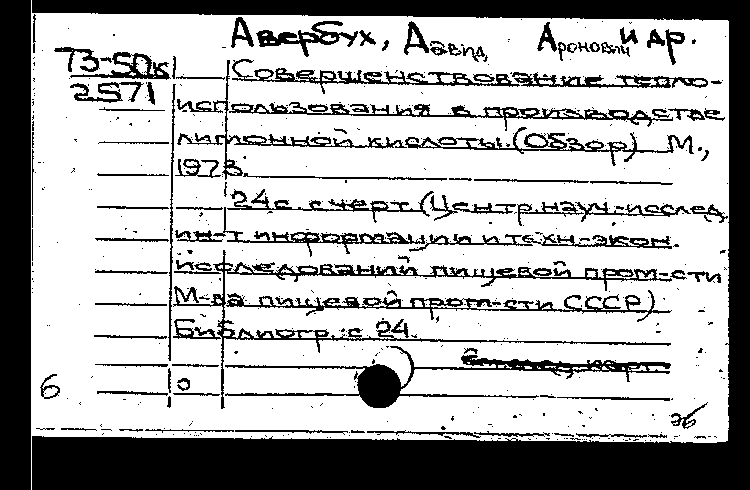 Авербух, Давид Аронович и др.
73-50к
2571
Совершенствование тепло-
использования в производстве
лимонной кислоты. (Обзор) М.,
1973.
24 с. с черт. (Центр. науч.-исслед.
ин-т информации и техн.-экон.
исследований пищевой пром-сти
М-ва пищевой пром-сти СССР)
Библиогр.: с 24.
См. след. карт.
6
0